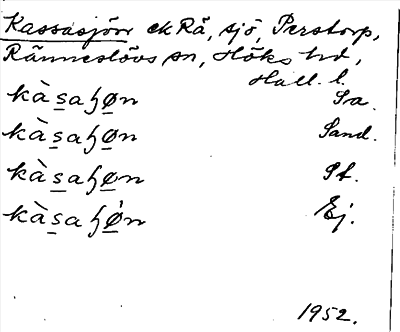 Kassasjön ek Rä, sjö, Perstorp,
Ränneslövs sn, Höks hd,
Hall. l.
kàsaɧøn Sa.
kàsaɧøn Sand.
kàsaɧøn Pt.
kàsaɧøn Ej.
1952.